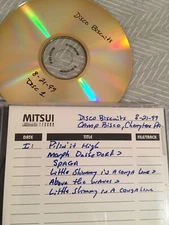 Disco Biscuits
8-21-99
Disc 1
MITSUI
Disco Biscuits, 8-21-99
Camp Bisco,
DATE
TITLE
I:
Pilin' it High
Morph Dusseldorf >
Spaga
Little Shimmy in a Conga Line >
Above the Waves >
Little Shimmy in a Conga Line